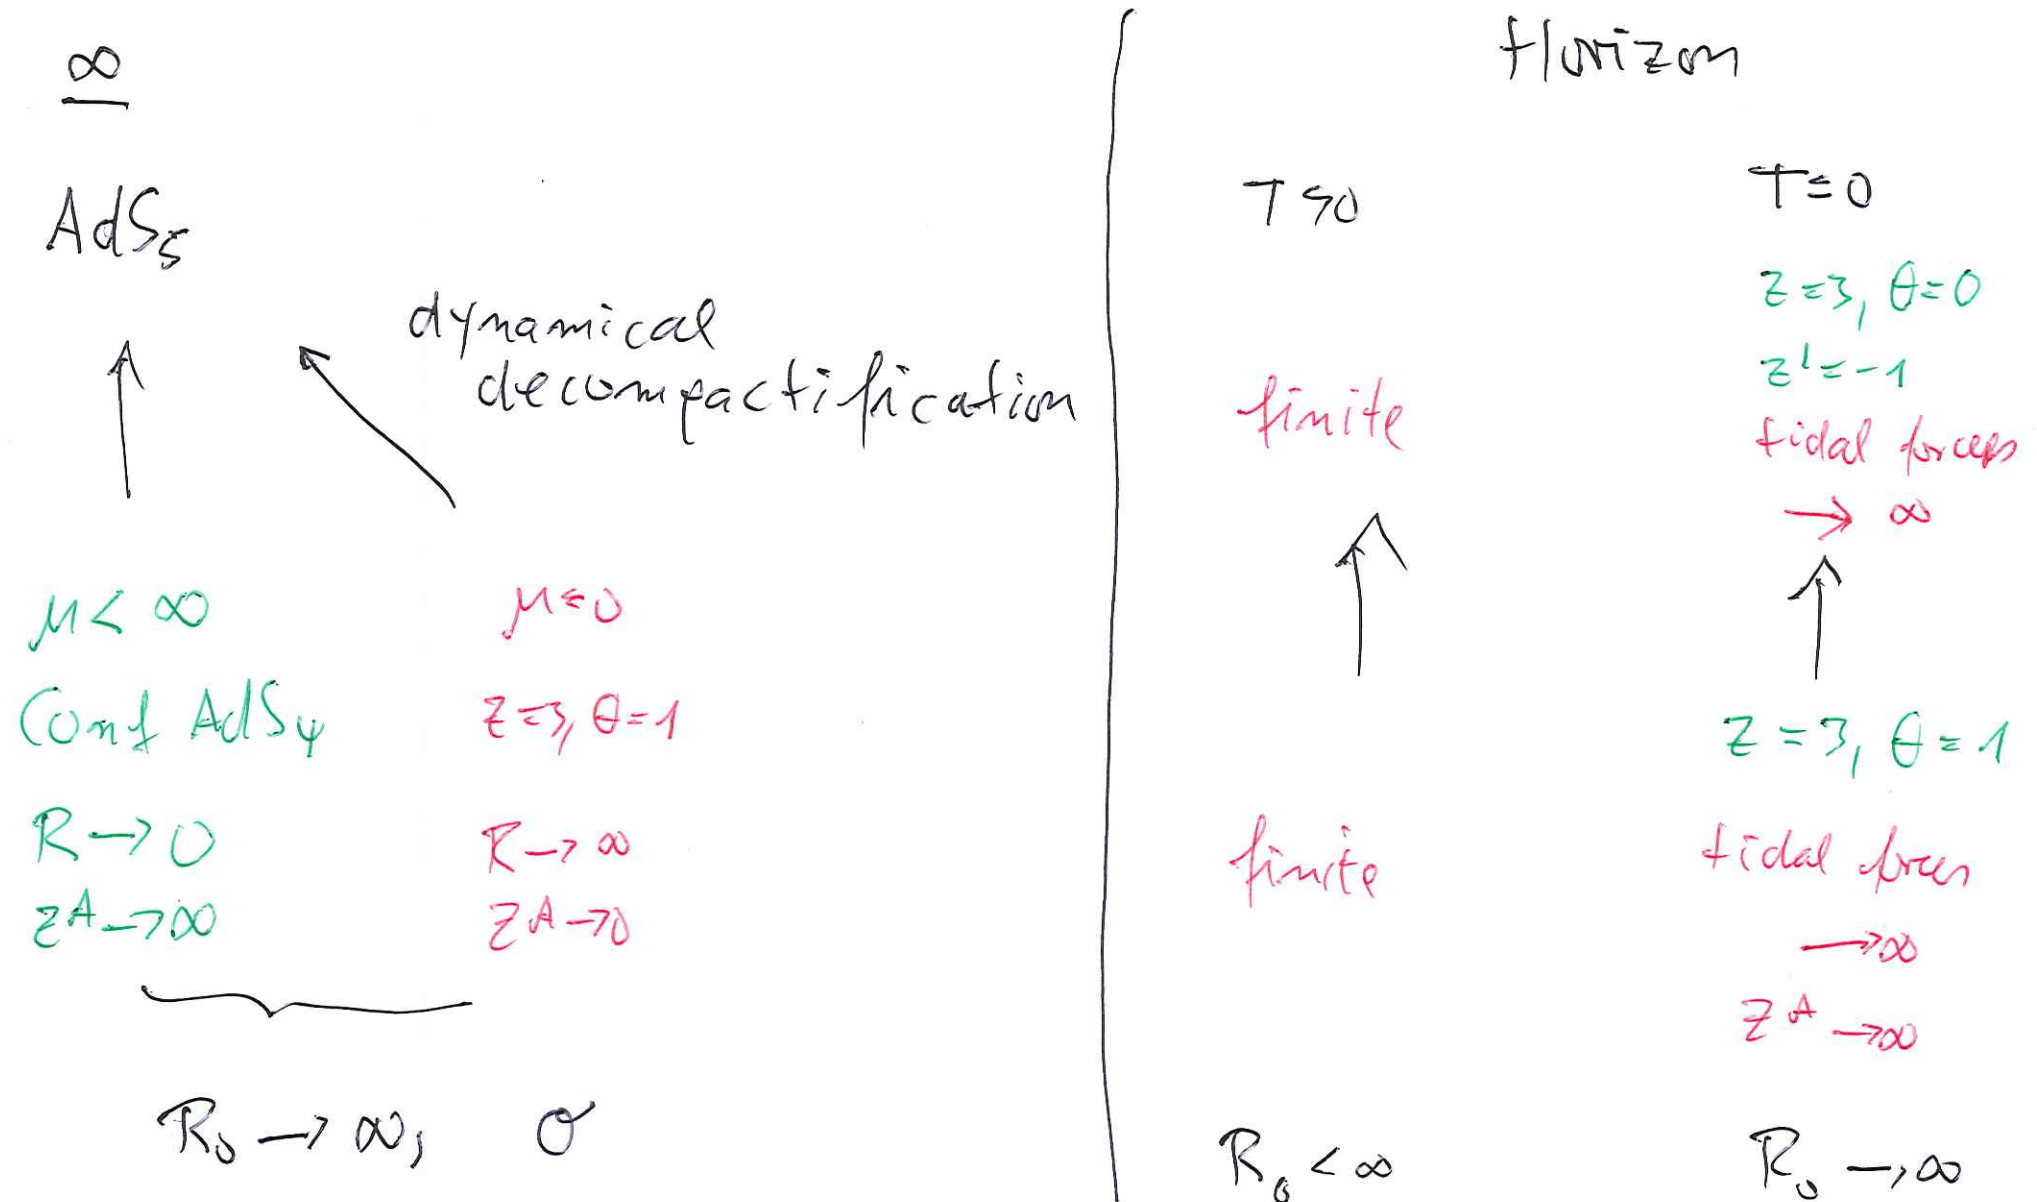 ∞
AdS₅
dynamical
decompactification
μ < ∞
Conf AdS₄
R → 0
z^A → ∞
μ = 0
z = 3, θ = 1
R → ∞
z^A → 0
R₀ → ∞, σ
Horizon
T > 0
finite
finite
R₀ < ∞
T = 0
z = 3, θ = 0
z' = -1
tidal forces
→ ∞
z = 3, θ = 1
tidal forces
→ ∞
z^A → ∞
R₀ → ∞